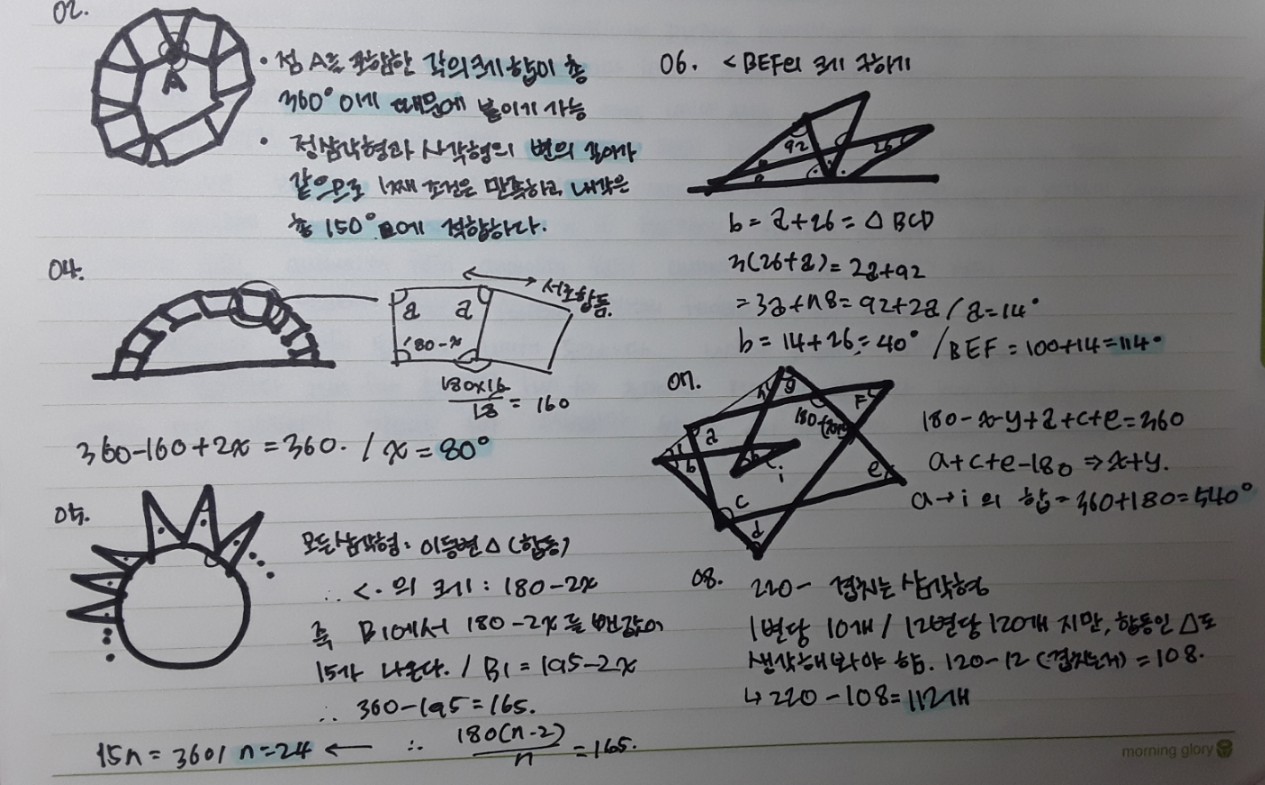 02.
A
• 점 A를 포함한 각의 크기 합이 총
360°이기 때문에 붙이기 가능
• 정삼각형과 사각형의 변의 길이가
같으므로 1째 조건은 만족하고 내각은
총 150°에 적합하다.
04.
a a
180-x
서로합동.
180×16
18 = 160
360-160+2x = 360. / x = 80°
05.
모든삼각형: 이등변△(합동)
∴ <·의 크기: 180-2x
즉 B1에서 180-2x를 뺀값이
15가 나온다. / B1 = 195-2x
∴ 360-195=165.
15n = 360 / n=24 ← ∴ 180(n-2)
n = 165.
06. <BEF의 크기 구하기
92 26
b = a+26 = △BCD
3(26+a) = 2a+92
= 3a+78 = 92+2a / a=14°
b = 14+26 = 40° / BEF = 100+14=114°
07.
h g F
a 180
b i e
c
d
180-x-y+a+c+e=360
a+c+e-180 ⇒ x+y.
a→i의 합 = 360+180=540°
08. 220- 겹치는 삼각형
1변당 10개 / 12변당 120개 지만, 합동인 △도
생각해봐야 함. 120-12 = 108.
↳ 220-108=112개
morning glory